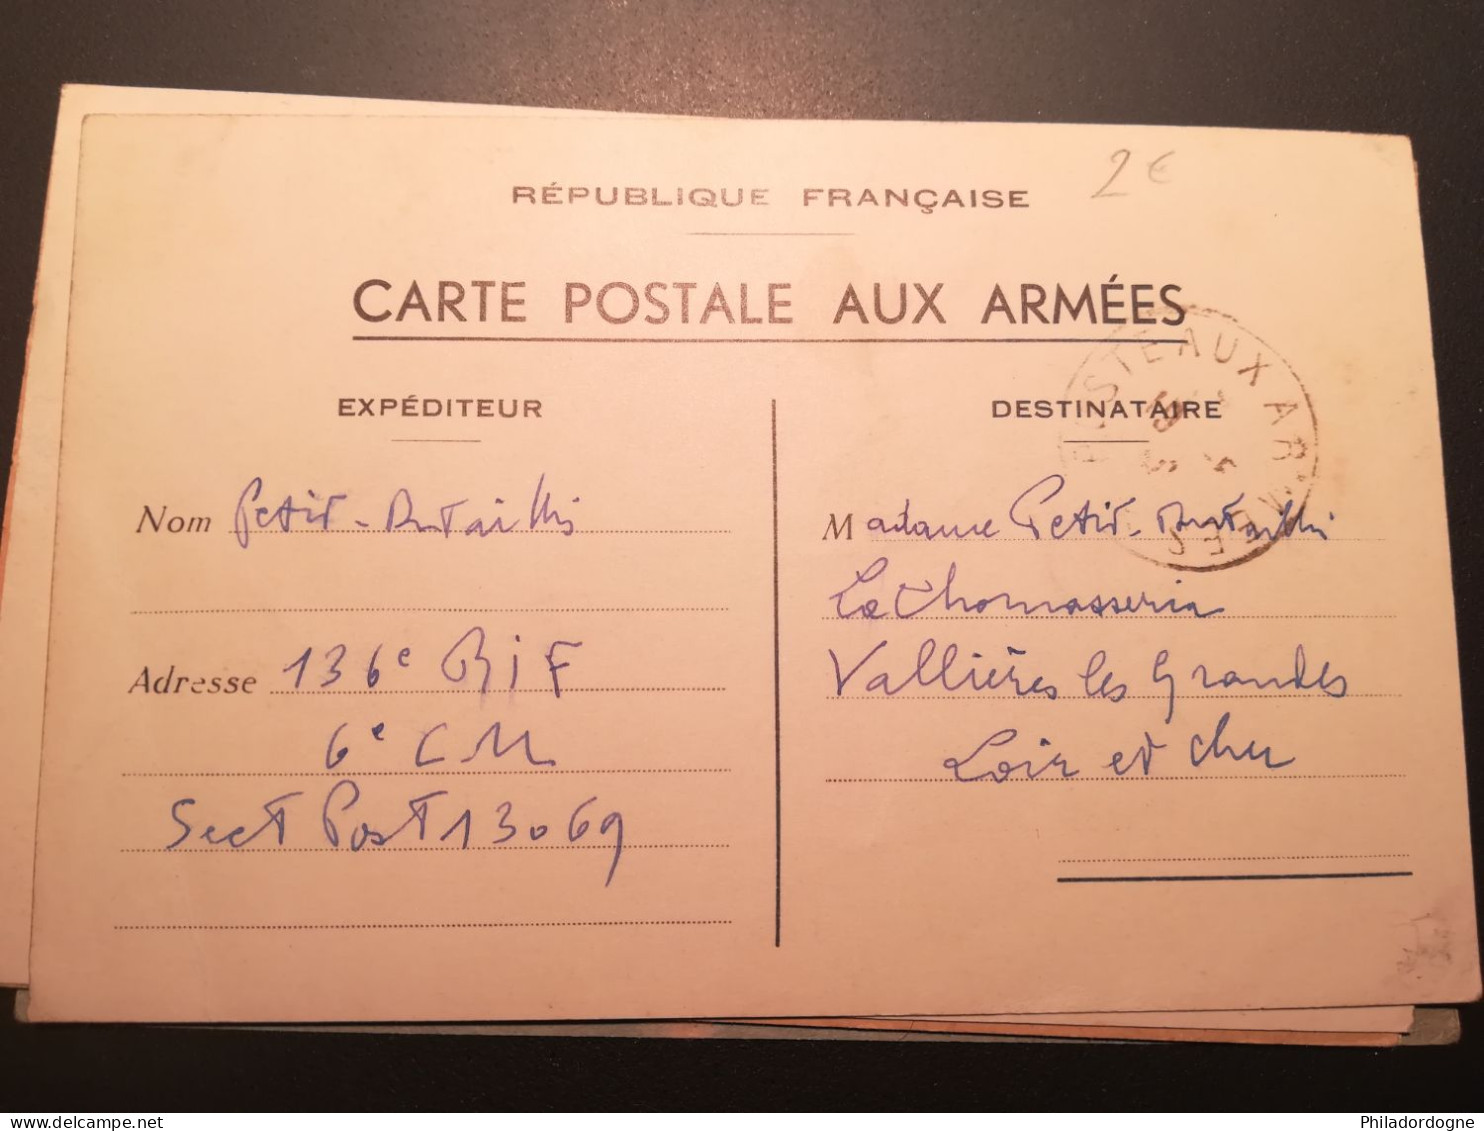 2€
RÉPUBLIQUE FRANÇAISE
CARTE POSTALE AUX ARMÉES
POSTE AUX ARMÉES
EXPÉDITEUR
Nom Petit-Dutaillis
Adresse 136e RIF
6e CM
Sect Post 13069
DESTINATAIRE
Madame Petit-Dutaillis
La Thomasserie
Vallières les Grandes
Loir et Cher
Philadordogne